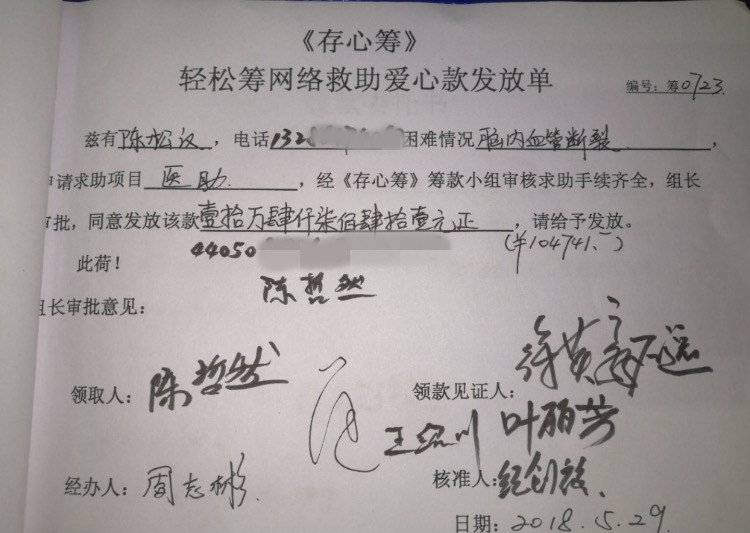 《存心筹》
轻松筹网络救助爱心款发放单
编号:筹0723
兹有陈松汉,电话132 困难情况脑内血管断裂,
申请求助项目医助,经《存心筹》筹款小组审核求助手续齐全,组长
审批,同意发放该款壹拾万肆仟柒佰肆拾壹元正,请给予发放。
(¥104741.)
此荷!
44050
陈哲然
组长审批意见:
领取人:陈哲然
领款见证人:
王绍川 叶丽芳
经办人:周志彬
核准人:
日期:2018.5.29